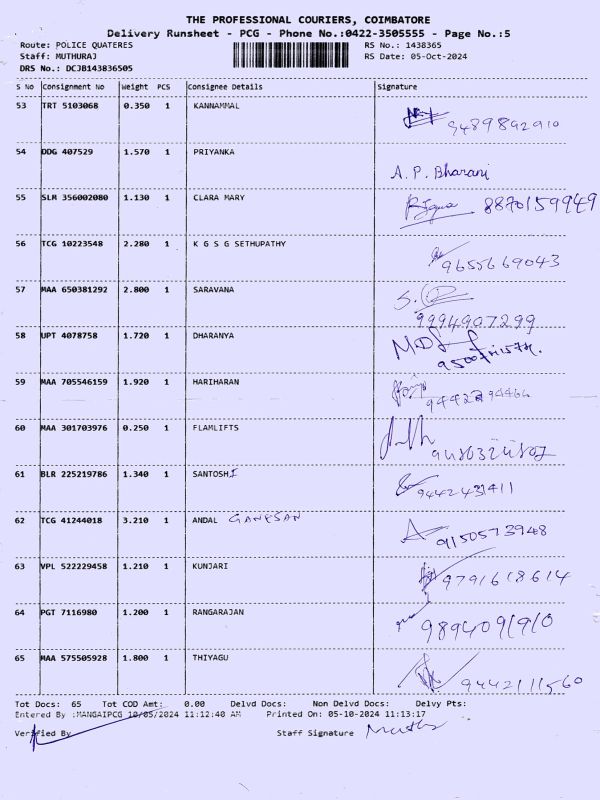 THE PROFESSIONAL COURIERS, COIMBATORE
Delivery Runsheet - PCG - Phone No.:0422-3505555 - Page No.:5
Route: POLICE QUATERES RS No.: 1438365
Staff: MUTHURAJ RS Date: 05-Oct-2024
DRS No.: DCJB143836505
S No Consignment No Weight PCS Consignee Details Signature
53 TRT 5103068 0.350 1 KANNAMMAL 9489892910
54 DDG 407529 1.570 1 PRIYANKA A.P. Bharani
55 SLM 356002080 1.130 1 CLARA MARY 8870159949
56 TCG 10223548 2.280 1 K G S G SETHUPATHY 9655669043
57 MAA 650381292 2.800 1 SARAVANA 9994907299
58 UPT 4078758 1.720 1 DHARANYA
59 MAA 705546159 1.920 1 HARIHARAN
60 MAA 301703976 0.250 1 FLAMLIFTS
61 BLR 225219786 1.340 1 SANTOSHI 9442431411
62 TCG 41244018 3.210 1 ANDAL GANESAN 9150573948
63 VPL 522229458 1.210 1 KUNJARI 9791618614
64 PGT 7116980 1.200 1 RANGARAJAN 9894091910
65 MAA 575505928 1.800 1 THIYAGU 9442111560
Tot Docs: 65 Tot COD Amt: 0.00 Delvd Docs: Non Delvd Docs: Delvy Pts:
Entered By :MANGAIPCG 10/05/2024 11:12:40 AM Printed On: 05-10-2024 11:13:17
Verified By Staff Signature